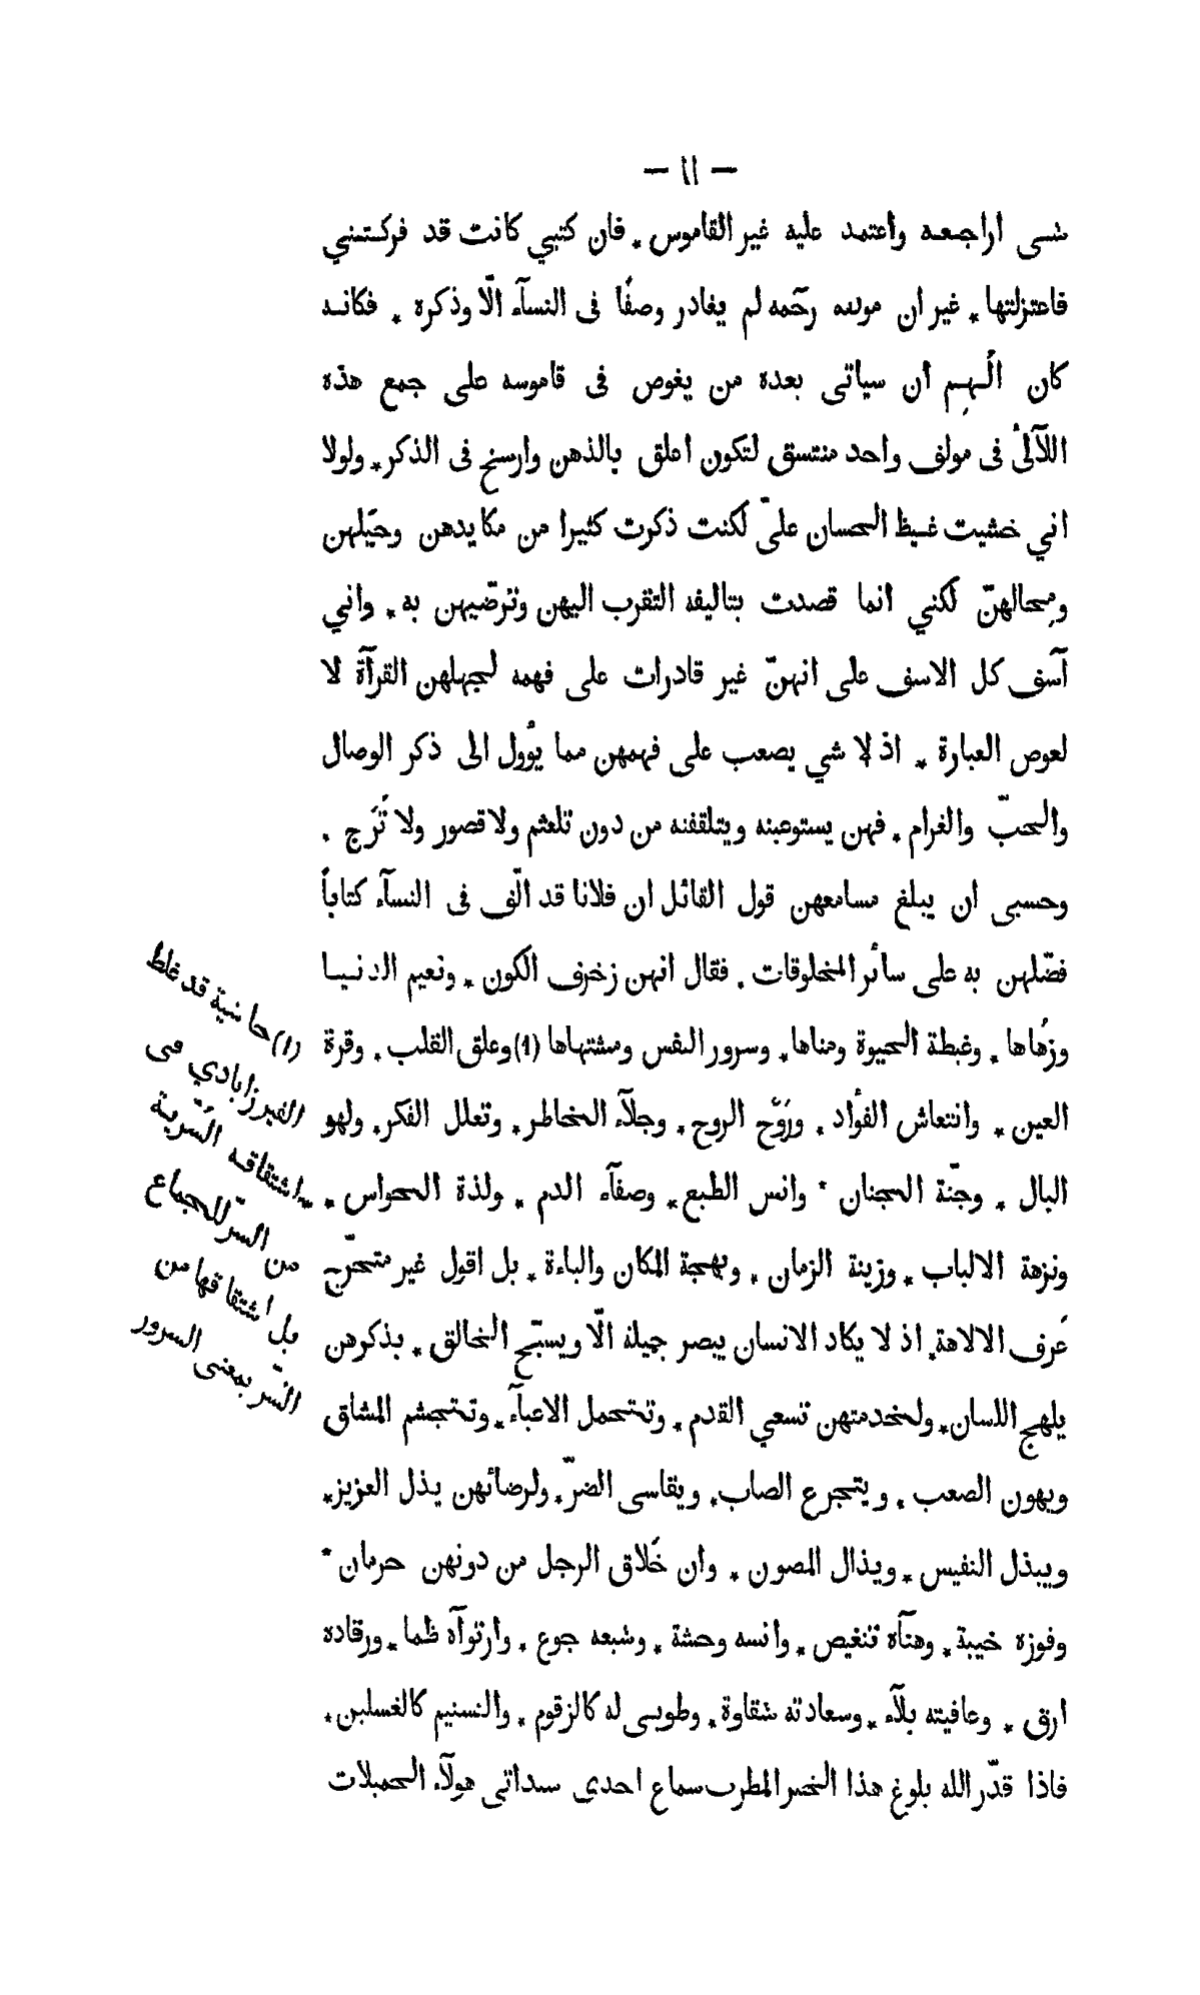 — ١١ —
شى اراجعه واعتمد عليه غير القاموس٭ فان كتبي كانت قد فركتمني
فاعتزلتها٭ غير ان مولفه رحّمه لم يغادر وصفًا فى النسآء الّا وذكره ٭ فكانه
كان اُلهِم ان سياتى بعده من يغوص فى قاموسه على جمع هذه
اللآلىُ فى مولف واحد منتسق لتكون اعلق بالذهن وارسخ فى الذكر٭ ولولا
اني خشيت غيظ الحسان علىّ لكنت ذكرت كثيرا من مكايدهن وحِيَلهن
ومِحالهنّ لكني انما قصدت بتاليفه التقرب اليهن وترضّيهن به٭ واني
آسف كل الاسف على انهنّ غير قادرات على فهمه لجهلهن القرآة لا
لعوص العبارة ٭ اذ لا شي يصعب على فهمهن مما يوُول الى ذكر الوصال
والحبّ والغرام٭ فهن يستوعبنه ويتلقفنه من دون تلعثم ولا قصور ولا تُرَج ٭
وحسبى ان يبلغ مسامعهن قول القائل ان فلانا قد الّف فى النسآء كتاباً
فضّلهن به على سائر المخلوقات٭ فقال انهن زخرف الكون٭ ونعيم الدنيا
وزُهاها٭ وغبطة الحيوة ومناها٭ وسرور النفس ومشتهاها (١) وعلق القلب٭ وقرة
العين٭ وانتعاش الفوُاد ٭ ورَوّح الروح٭ وجلآء الخاطر٭ وتعلل الفكر٭ ولهو
البال ٭ وجنّة الجنان ٭ وانس الطبع٭ وصفآء الدم ٭ ولذة الحواس ٭
ونزهة الالباب٭ وزينة الزمان٭ وبهجة المكان والباءة٭ بل اقول غير متحرّج
عَرف الالاهة٭ اذ لا يكاد الانسان يبصر جميلة الّا ويسبّح الخالق٭ بذكرهن
يلهج اللسان٭ ولخدمتهن تسعي القدم٭ وتتحمل الاعبآء٭ وتتجشم المشاق
ويهون الصعب٭ ويتجرع الصاب٭ ويقاسى الضرّ٭ ولرضائهن يذل العزيز٭
ويبذل النفيس٭ ويذال المصون٭ وان خَلاق الرجل من دونهن حرمان٭
وفوزه خيبة٭ وهنآه تنغيص٭ وانسه وحشة٭ وشبعه جوع٭ وارتوآه ظما٭ ورقاده
ارق ٭ وعافيته بلآء٭ وسعادته شقاوة٭ وطوبى له كالزقوم٭ والتسنيم كالغسلين٭
فاذا قدّر الله بلوغ هذا الخبر المطرب سماع احدى سيداتى هولآء الجميلات
(١) حاشية قد غلط
الفيرزابادي فى
اشتقاقه السُّرّية
من السِرّ للجماع
بل اشتقاقها من
السّر بمعنى السرور